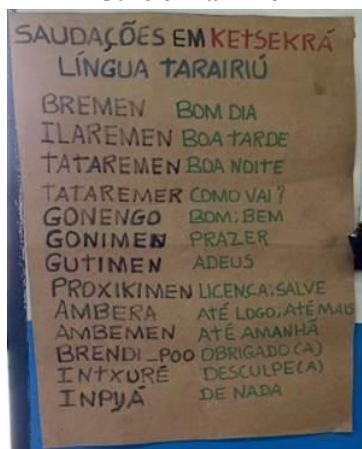 SAUDAÇÕES EM KETSEKRÁ
LÍNGUA TARAIRIÚ
BREMEN BOM DIA
ILAREMEN BOA TARDE
TATAREMEN BOA NOITE
TATAREMER COMO VAI?
GONENGO BOM; BEM
GONIMEN PRAZER
GUTIMEN ADEUS
PROXIKIMEN LICENÇA; SALVE
AMBERA ATÉ LOGO; ATÉ MAIS
AMBEMEN ATÉ AMANHÃ
BRENDI_POO OBRIGADO(A)
INTXURÉ DESCULPE(A)
INPYÁ DE NADA